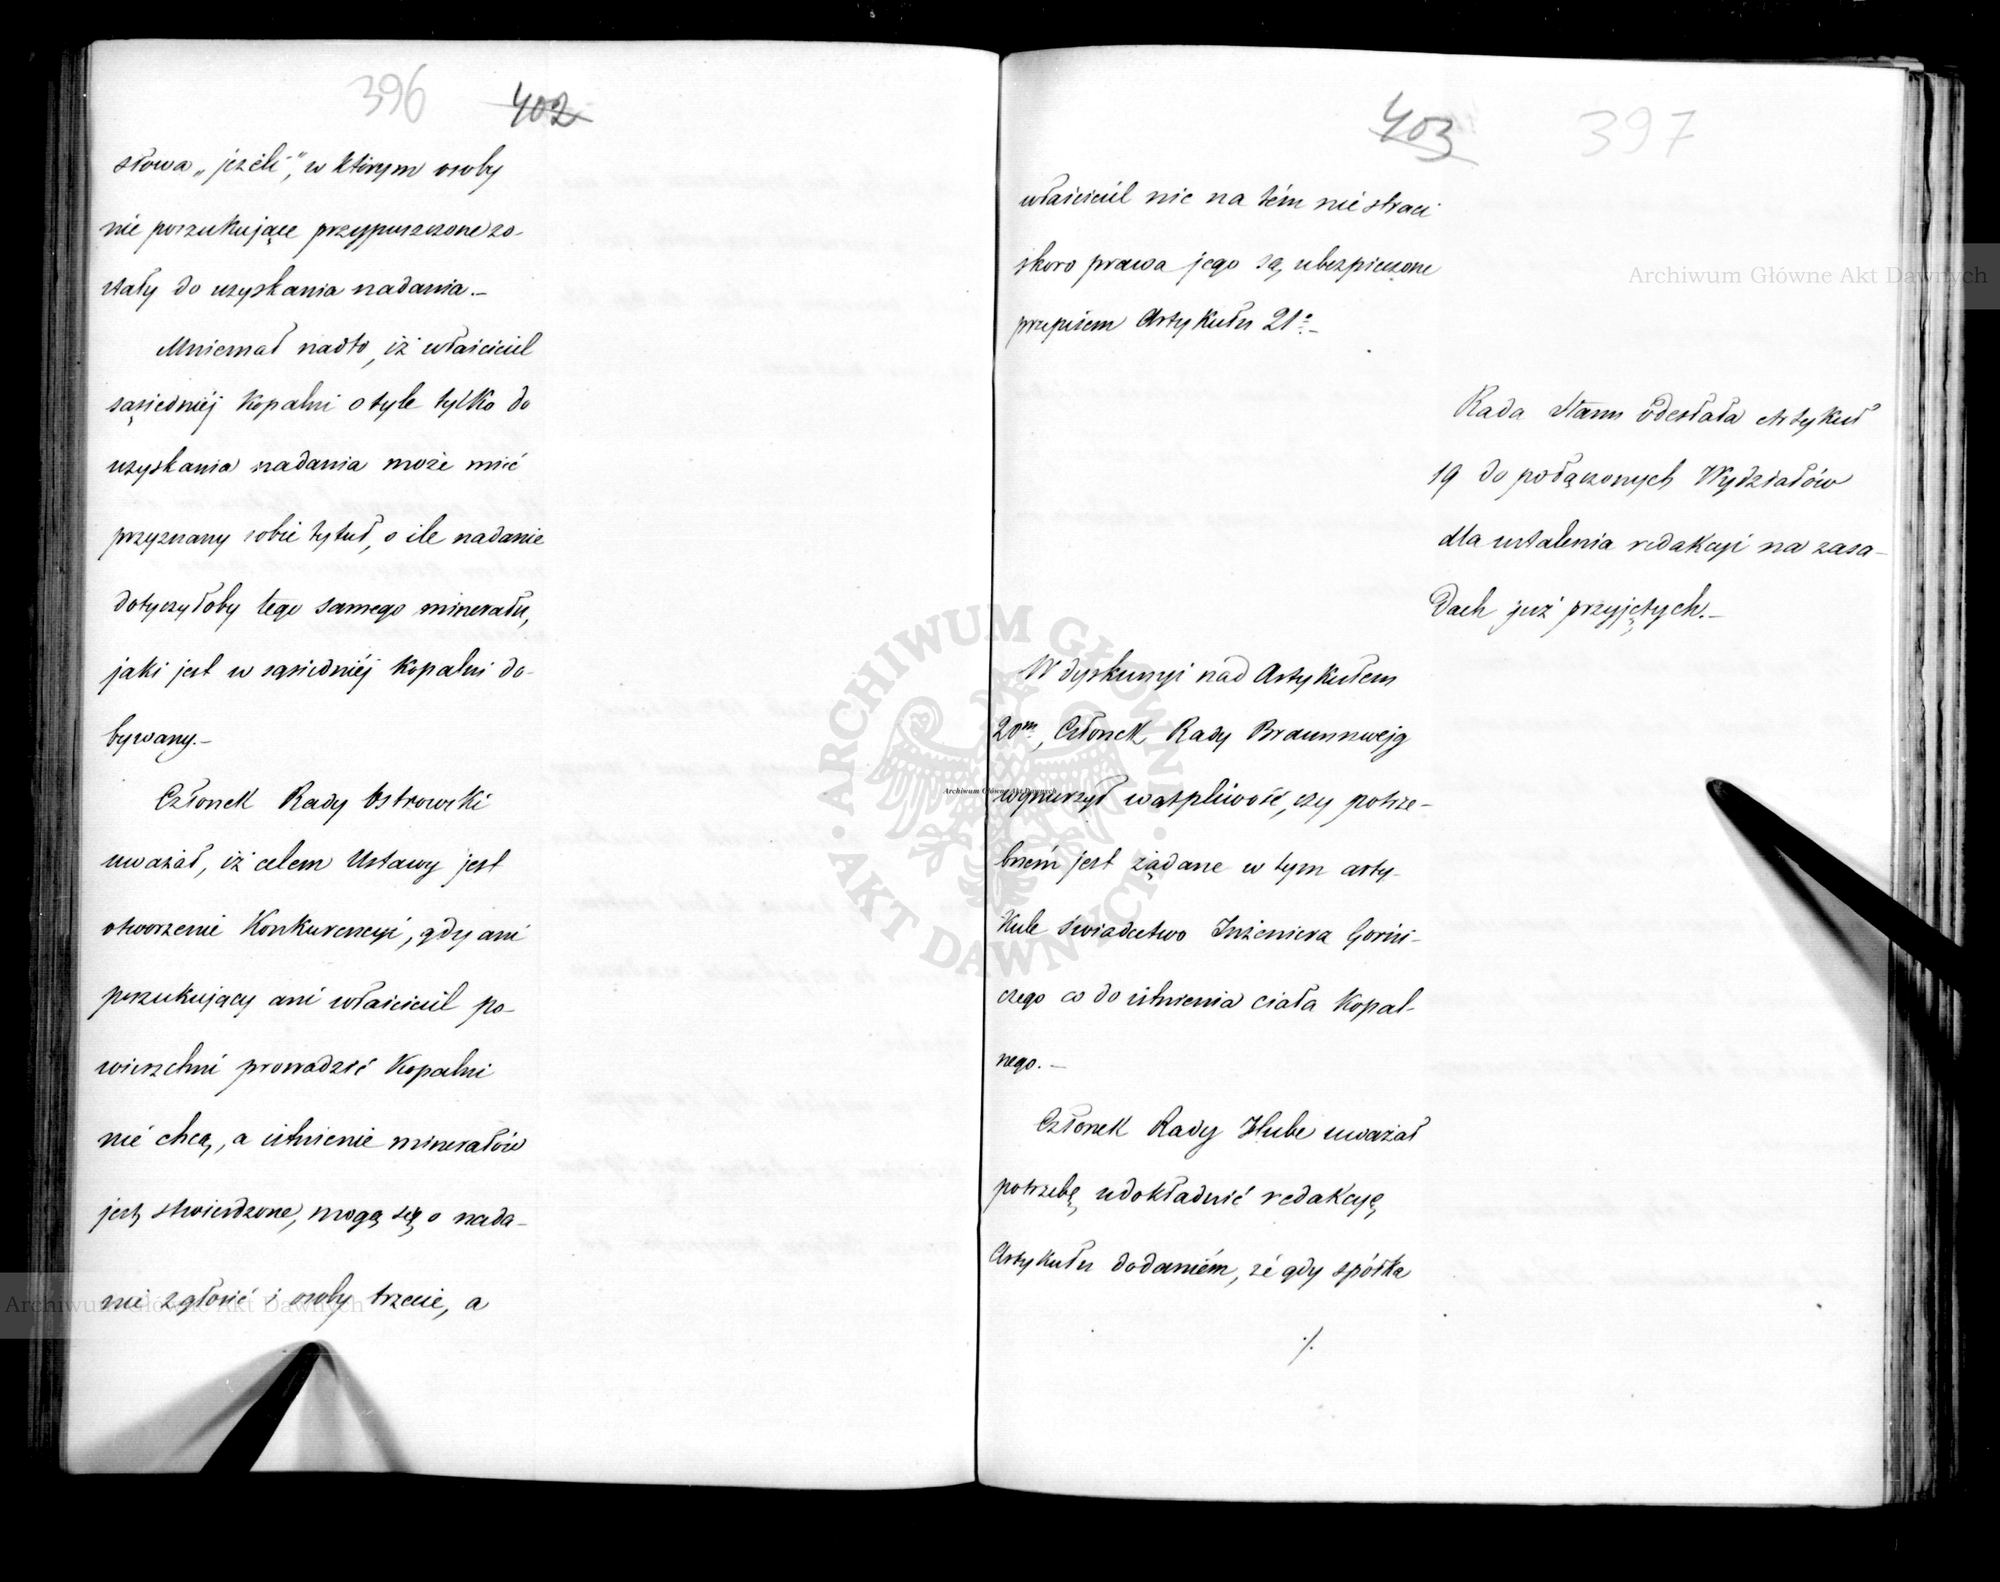 396 402
słowa „jeżeli”, w którym osoby
nie poszukujące przypuszczone zo-
stały do uzyskania nadania.-
Mniemał nadto, iż właściciel
sąsiedniéj Kopalni o tyle tylko do
uzyskania nadania może mieć
przyznany sobie tytuł, o ile nadanie
dotyczyłoby tego samego minerału,
jaki jest w sąsiedniéj Kopalni do-
bywany.-
Członek Rady Ostrowski
uważał, iż celem Ustawy jest
otworzenie Konkurencyi, gdy ani
poszukujący ani właściciel po-
wierzchni prowadzić Kopalni
nie chcą, a istnienie minerałów
jest stwierdzone, mogą się o nada-
nie zgłosić i osoby trzecie, a
403 397
właściciel nic na tém nie straci
skoro prawa jego są ubezpieczone
przepisem Artykułu 21º.-
Rada Stanu odesłała Artykuł
19 do połączonych Wydziałów
dla ustalenia redakcyi na zasa-
dach już przyjętych.-
W dyskussyi nad Artykułem
20m, Członek Rady Braunszwejg
wynurzył wątpliwość, czy potrze-
bném jest żądane w tym arty-
kule świadectwo Inżeniera Górni-
czego co do istnienia ciała Kopal-
nego.-
Członek Rady Hube uważał
potrzebę udokładnić redakcyę
Artykułu dodaniém, że gdy spółka
./.
Archiwum Główne Akt Dawnych
Archiwum Główne Akt Dawnych
Archiwum Główne Akt Dawnych
ARCHIWUM GŁÓWNE · AKT DAWNYCH ·